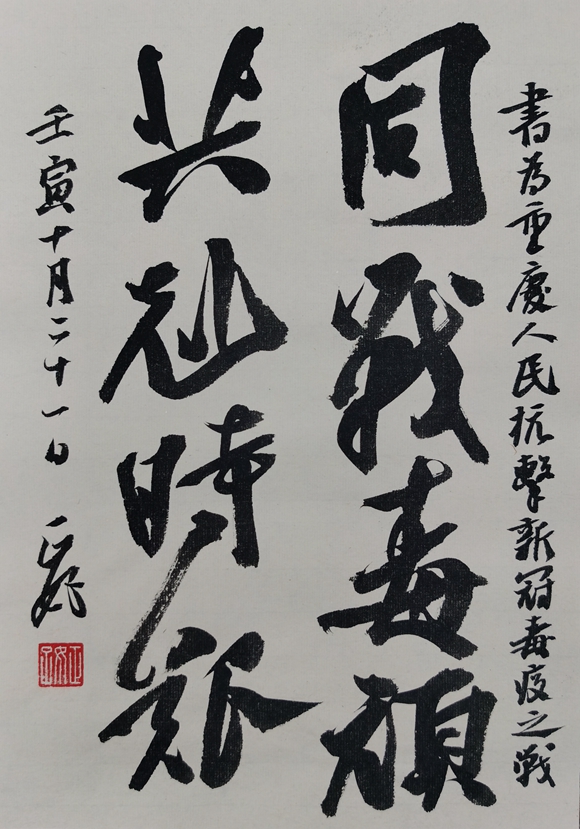 書為重慶人民抗擊新冠毒疫之戰
同戰毒頑
共時艱
壬寅十月二十一日